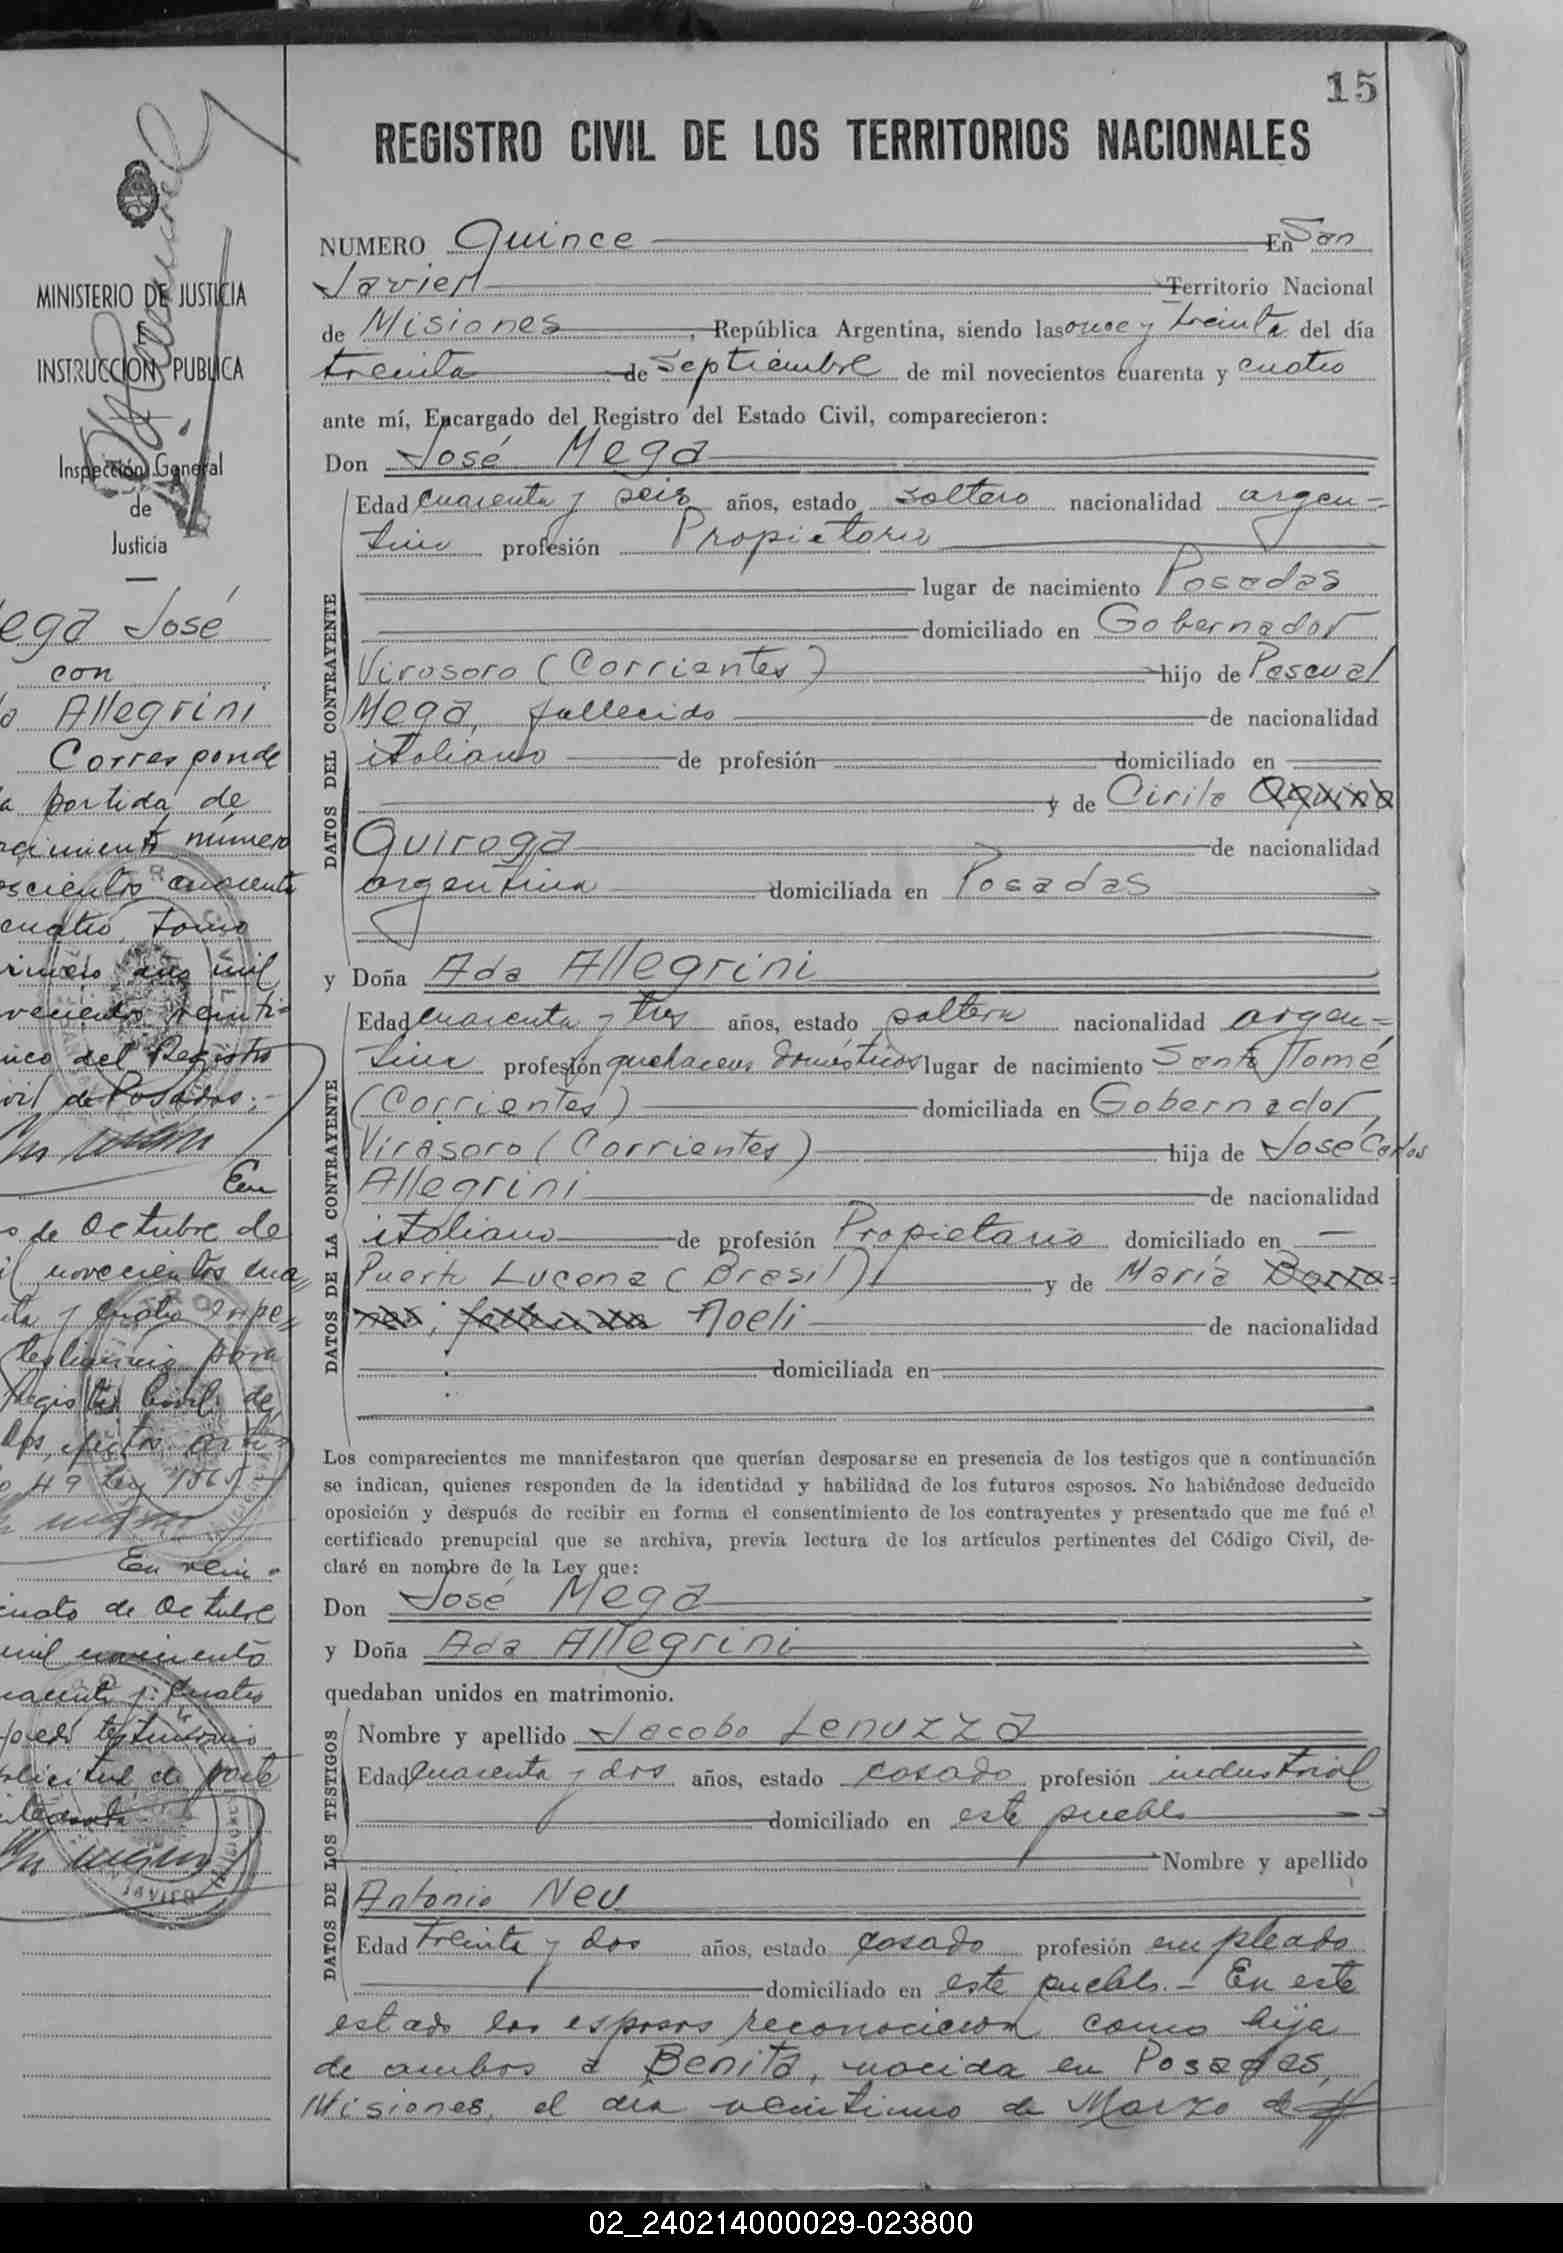 15
REGISTRO CIVIL DE LOS TERRITORIOS NACIONALES
NUMERO Quince En San
Javier Territorio Nacional
de Misiones, República Argentina, siendo las once y treinta del día
treinta de Septiembre de mil novecientos cuarenta y cuatro
ante mí, Encargado del Registro del Estado Civil, comparecieron:
Don José Mega
DATOS DEL CONTRAYENTE
Edad cuarenta y seis años, estado soltero nacionalidad argen=
tino profesión Propietario
lugar de nacimiento Posadas
domiciliado en Gobernador
Virosoro (Corrientes) hijo de Pascual
Mega, fallecido de nacionalidad
italiano de profesión domiciliado en
y de Cirila Aquino
Quiroga de nacionalidad
argentina domiciliada en Posadas
y Doña Ada Allegrini
DATOS DE LA CONTRAYENTE
Edad cuarenta y tres años, estado soltera nacionalidad argen=
tina profesión quehaceres domésticos lugar de nacimiento Santo Tomé
(Corrientes) domiciliada en Gobernador
Virasoro (Corrientes) hija de José Carlos
Allegrini de nacionalidad
italiano de profesión Propietario domiciliado en —
Puerto Lucena (Brasil) y de María
Noeli de nacionalidad
domiciliada en
Los comparecientes me manifestaron que querían desposarse en presencia de los testigos que a continuación
se indican, quienes responden de la identidad y habilidad de los futuros esposos. No habiéndose deducido
oposición y después de recibir en forma el consentimiento de los contrayentes y presentado que me fué el
certificado prenupcial que se archiva, previa lectura de los artículos pertinentes del Código Civil, de-
claré en nombre de la Ley que:
Don José Mega
y Doña Ada Allegrini
quedaban unidos en matrimonio.
DATOS DE LOS TESTIGOS
Nombre y apellido Jacobo Lenuzza
Edad cuarenta y dos años, estado casado profesión industrial
domiciliado en este pueblo
Nombre y apellido
Antonio Neu
Edad treinta y dos años, estado casado profesión empleado
domiciliado en este pueblo.- En este
estado los esposos reconocieron como hija
de ambos a Benita, nacida en Posadas,
Misiones, el día veintiuno de Marzo de
MINISTERIO DE JUSTICIA
E
INSTRUCCION PUBLICA
Inspección General
de
Justicia
ega José
con
a Allegrini
Corresponde
a partida de
cimiento número
oscientos cuarenta
cuatro, tomo
rimero año mil
vecientos veinti=
nco del Registro
vil de Posadas.-
En
s de Octubre de
il novecientos cua=
ta y cuatro expe=
testimonio para
Registro Civil de
los efectos arti=
o 49 ley 1565
En vein=
cuatro de Octubre
mil novecientos
uarenta y cuatro
pedí testimonio
olicitud de parte
02_240214000029-023800